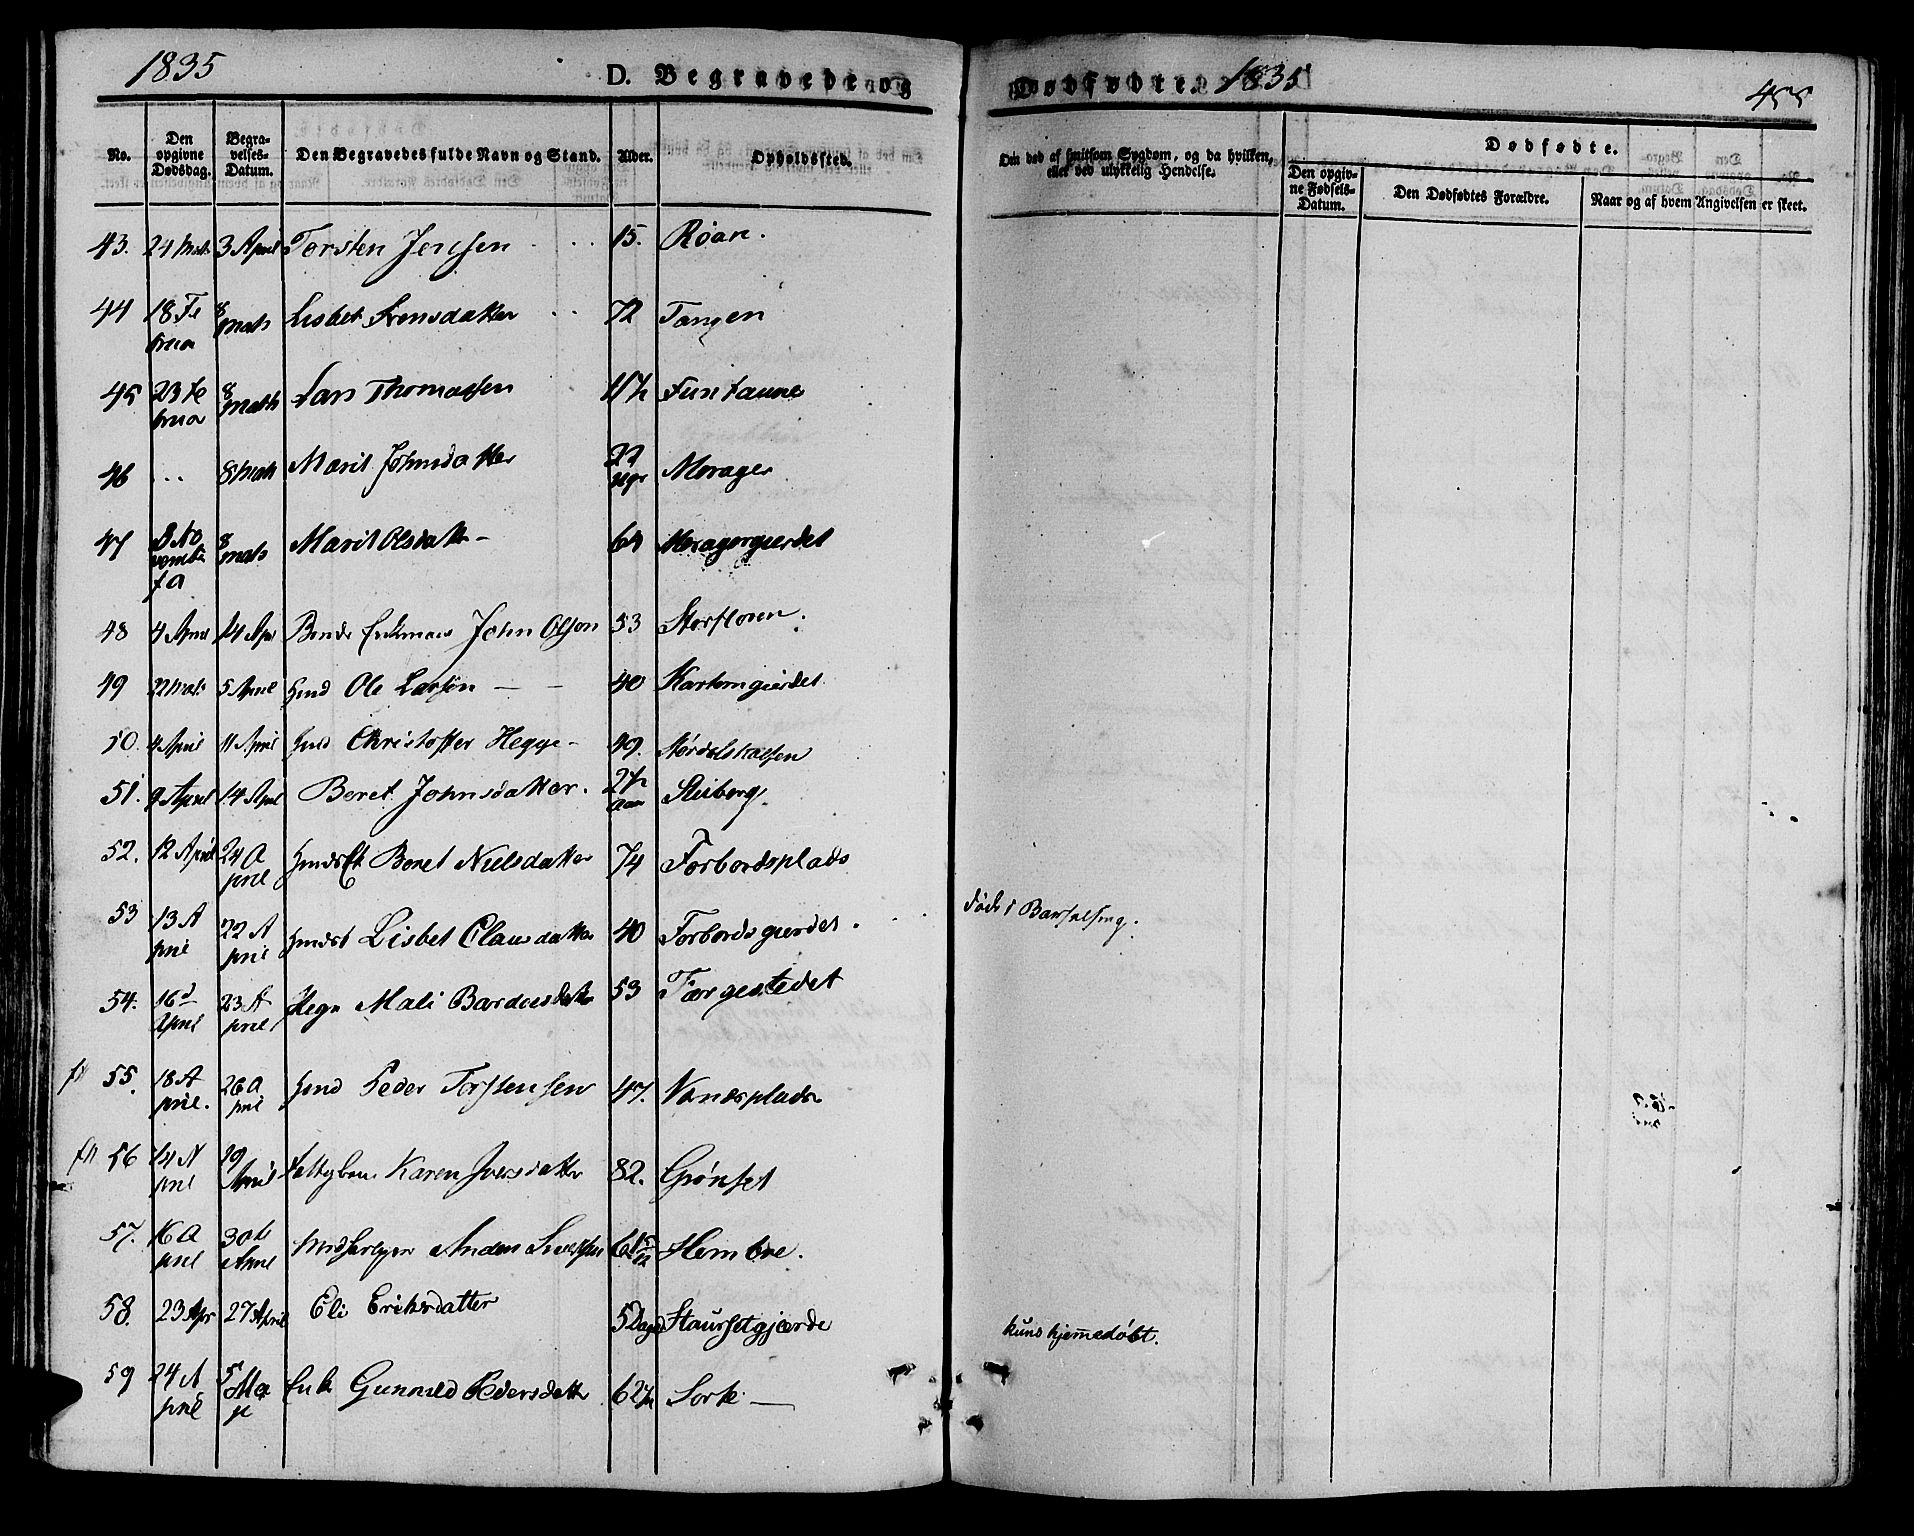 1835
D. Begravede og
Dødfødte. 1835
455
No.
Den opgivne Dødsdag.
Begravelses-Datum.
Den Begravedes fulde Navn og Stand.
Alder.
Opholdssted.
Om død af smitsom Sygdom, og da hvilken, eller ved ulykkelig Hendelse.
Dødfødte.
Den opgivne Fødsels-Datum.
Den Dødfødtes Forældre.
Naar og af hvem Angivelsen er skeet.
43. 24 Mats 3 April Torsten Jensen 15. Røan.
44 18 Februa 8 Mats Lisbet Svensdatter 72 Tangen
45 23 Februa 8 Mats Lars Thomassen Funtaune
46 8 Mats Marit Johnsdatter 22 uger Morager
47 8 November 8 Mats Marit Olsdatter 64 Moragergierdet
48 4 April 14 Apr Bonde John Olsen 53 Storfloren.
49 22 Mats 5 April Huusd Ole Larsen 40 Kartomgierdet
50. 4 April 11 April Huusd Christoffer Hegge 49. Størdalskalsen
51. 9 April 14 April Beret Johnsdatter. Aar Steiberg.
52. 12 April 24 April Beret Nielsdatter 74 Forbordsplads
53 13 April 22 April Lisbet Clausdatter 40 Forbordsgierdet. døde i Barselseng.
54. 16d April 23 April Mali Bardosdatter 53 Færgestedet
55. 18 April. 26 April Huusd Peder Torstensen 47. Vennesplads
56 14 April 29 April Karen Iversdatter 82. Grønset
57. 16 April 30 April Anders Siversen Hembre.
58. 23 Apr 27 April Eli Eriksdatter 5 Dage Staursetgjærde kuns hjemmedøbt.
59 24 April 5 Maj Enke Gunnild Pedersdatter Sorte